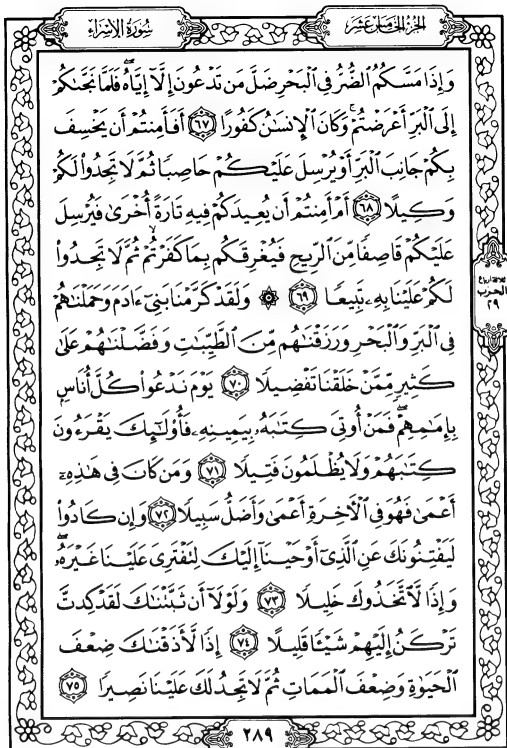 الجزء الخامس عشر
سورة الإسراء
وَإِذَا مَسَّكُمُ ٱلضُّرُّ فِي ٱلْبَحْرِ ضَلَّ مَن تَدْعُونَ إِلَّآ إِيَّاهُ ۖ فَلَمَّا نَجَّىٰكُمْ
إِلَى ٱلْبَرِّ أَعْرَضْتُمْ ۚ وَكَانَ ٱلْإِنسَٰنُ كَفُورًا ٦٧ أَفَأَمِنتُمْ أَن يَخْسِفَ
بِكُمْ جَانِبَ ٱلْبَرِّ أَوْ يُرْسِلَ عَلَيْكُمْ حَاصِبًا ثُمَّ لَا تَجِدُوا۟ لَكُمْ
وَكِيلًا ٦٨ أَمْ أَمِنتُمْ أَن يُعِيدَكُمْ فِيهِ تَارَةً أُخْرَىٰ فَيُرْسِلَ
عَلَيْكُمْ قَاصِفًا مِّنَ ٱلرِّيحِ فَيُغْرِقَكُم بِمَا كَفَرْتُمْ ۙ ثُمَّ لَا تَجِدُوا۟
لَكُمْ عَلَيْنَا بِهِۦ تَبِيعًا ٦٩ ۞ وَلَقَدْ كَرَّمْنَا بَنِيٓ ءَادَمَ وَحَمَلْنَٰهُمْ
فِي ٱلْبَرِّ وَٱلْبَحْرِ وَرَزَقْنَٰهُم مِّنَ ٱلطَّيِّبَٰتِ وَفَضَّلْنَٰهُمْ عَلَىٰ
كَثِيرٍ مِّمَّنْ خَلَقْنَا تَفْضِيلًا ٧٠ يَوْمَ نَدْعُوا۟ كُلَّ أُنَاسٍۭ
بِإِمَٰمِهِمْ ۖ فَمَنْ أُوتِيَ كِتَٰبَهُۥ بِيَمِينِهِۦ فَأُو۟لَٰٓئِكَ يَقْرَءُونَ
كِتَٰبَهُمْ وَلَا يُظْلَمُونَ فَتِيلًا ٧١ وَمَن كَانَ فِي هَٰذِهِۦٓ
أَعْمَىٰ فَهُوَ فِي ٱلْءَاخِرَةِ أَعْمَىٰ وَأَضَلُّ سَبِيلًا ٧٢ وَإِن كَادُوا۟
لَيَفْتِنُونَكَ عَنِ ٱلَّذِيٓ أَوْحَيْنَآ إِلَيْكَ لِتَفْتَرِيَ عَلَيْنَا غَيْرَهُۥ ۖ
وَإِذًا لَّٱتَّخَذُوكَ خَلِيلًا ٧٣ وَلَوْلَآ أَن ثَبَّتْنَٰكَ لَقَدْ كِدتَّ
تَرْكَنُ إِلَيْهِمْ شَيْـًٔا قَلِيلًا ٧٤ إِذًا لَّأَذَقْنَٰكَ ضِعْفَ
ٱلْحَيَوٰةِ وَضِعْفَ ٱلْمَمَاتِ ثُمَّ لَا تَجِدُ لَكَ عَلَيْنَا نَصِيرًا ٧٥
ثلاثة أرباع
الحزب
٢٩
٢٨٩